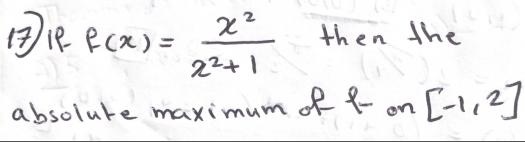 17) If f(x) = x²/(x²+1) then the
absolute maximum of f on [-1,2]